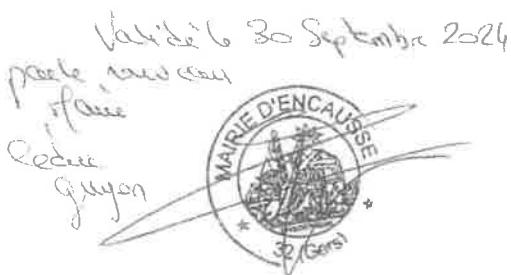 Validé le 30 Septembre 2024
par le nouveau
Maire
Cédric
Guyon
MAIRIE D'ENCAUSSE
* 32 (Gers) *